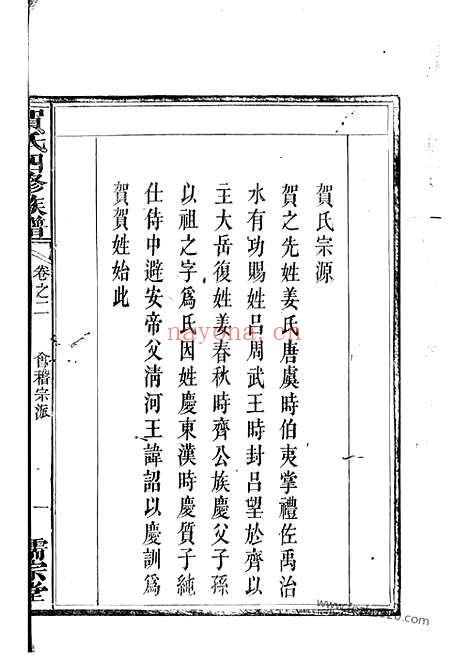 賀氏宗源
賀之先姓姜氏唐虞時伯夷掌禮佐禹治
水有功賜姓呂周武王時封呂望於齊以
主大岳復姓姜春秋時齊公族慶父子孫
以祖之字爲氏因姓慶東漢時慶質子純
仕侍中避安帝父清河王諱詔以慶訓爲
賀賀姓始此
賀氏四修族譜
卷之二
會稽宗派
一
儒宗堂
nayona.cn